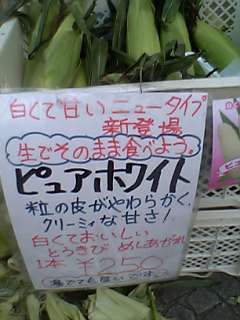 白くて甘いニュータイプ
新登場
生でそのまま食べよう。
ピュアホワイト
粒の皮がやわらかく、
クリーミィな甘さ!
白くておいしい
とうきび めしあがれ
1本 ¥250